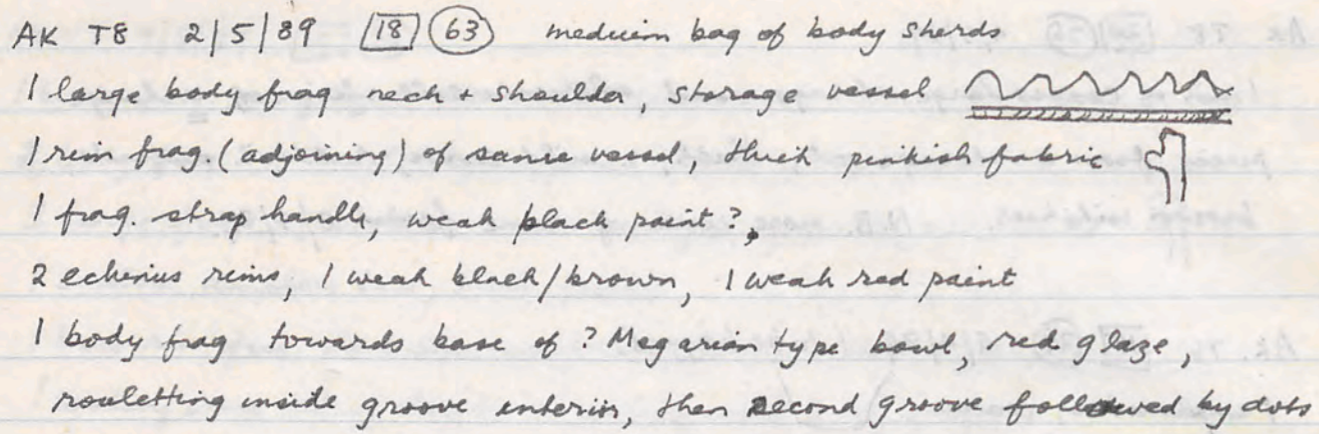 AK T8 2/5/89 18 63 medium bag of body sherds
1 large body frag neck + shoulder, storage vessel
1 rim frag. (adjoining) of same vessel, thick pinkish fabric
1 frag. strap handle, weak black paint?
2 echinus rims, 1 weak black/brown, 1 weak red paint
1 body frag towards base of ? Megarian type bowl, red glaze,
rouletting inside groove interior, then second groove followed by dots